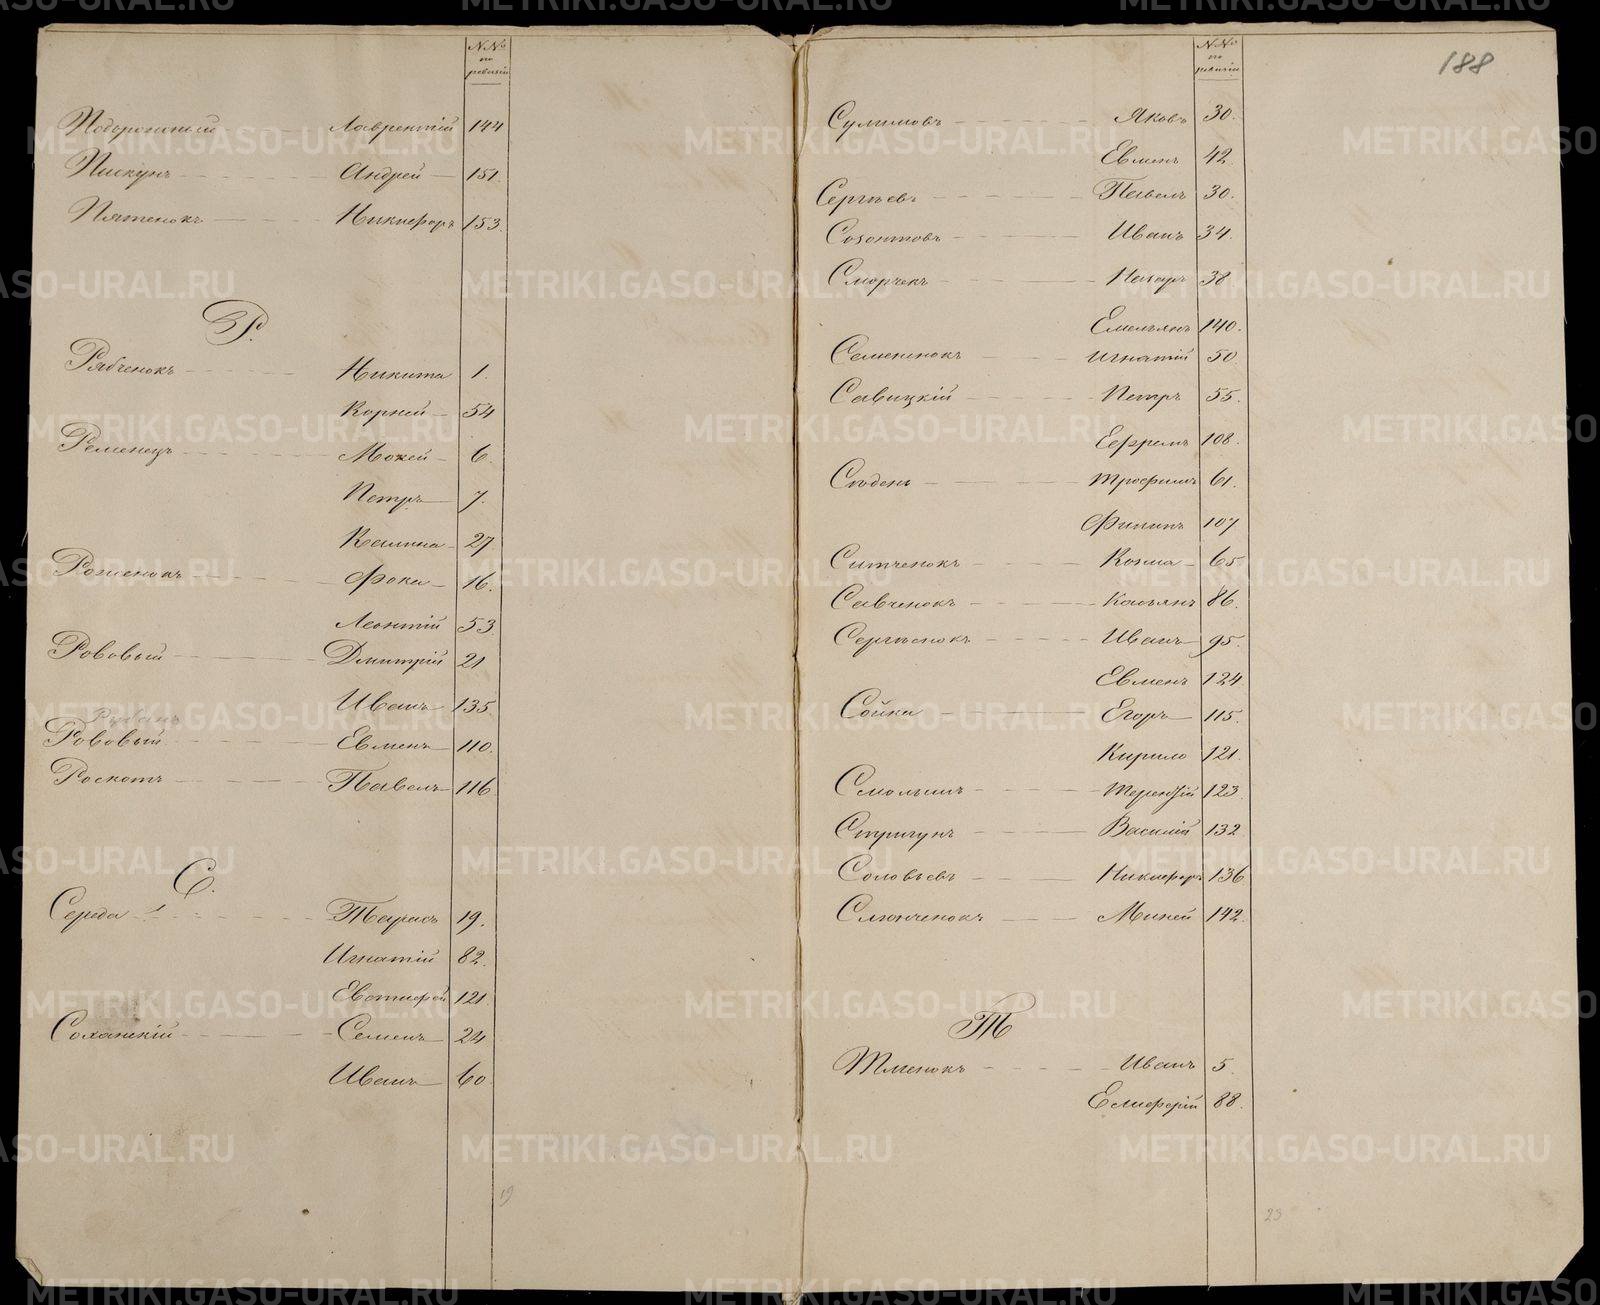 №№
по
ревизіи
Подорожный Лаврентій 144
Пискунъ Андрей 151.
Пятенокъ Никифоръ 153.
Р.
Рябченокъ Никита 1.
Корней 54
Ременецъ Мокей 6.
Петръ 7.
Калина 27
Роженокъ Фока 16.
Леонтій 53
Рововый Дмитрій 21
Иванъ 135.
Рубанъ
Рововый Евменъ 110.
Роскотъ Павелъ 116
С.
Середа Тарасъ 19.
Игнатій 82.
Евтифей 121.
Соханскій Семенъ 24
Иванъ 60
19
188
№№
по
ревизіи
Сулимовъ Яковъ 30.
Евменъ 42.
Сергѣевъ Павелъ 30.
Созонтовъ Иванъ 34.
Сморчекъ Назаръ 38.
Емельянъ 140.
Семененокъ Игнатій 50.
Савицкій Петръ 55.
Ефремъ 108.
Студень Трофимъ 61.
Филипъ 107
Ситченокъ Козма 65
Савченокъ Касьянъ 86.
Сергѣенокъ Иванъ 95.
Евменъ 124
Сойка Егоръ 115.
Кирило 121.
Смолынъ Терентій 123
Стригунъ Василій 132
Соловьевъ Никифоръ 136
Слюнченокъ Миней 142.
Т
Тменокъ Иванъ 5.
Елиферій 88.
23
METRIKI.GASO-URAL.RU